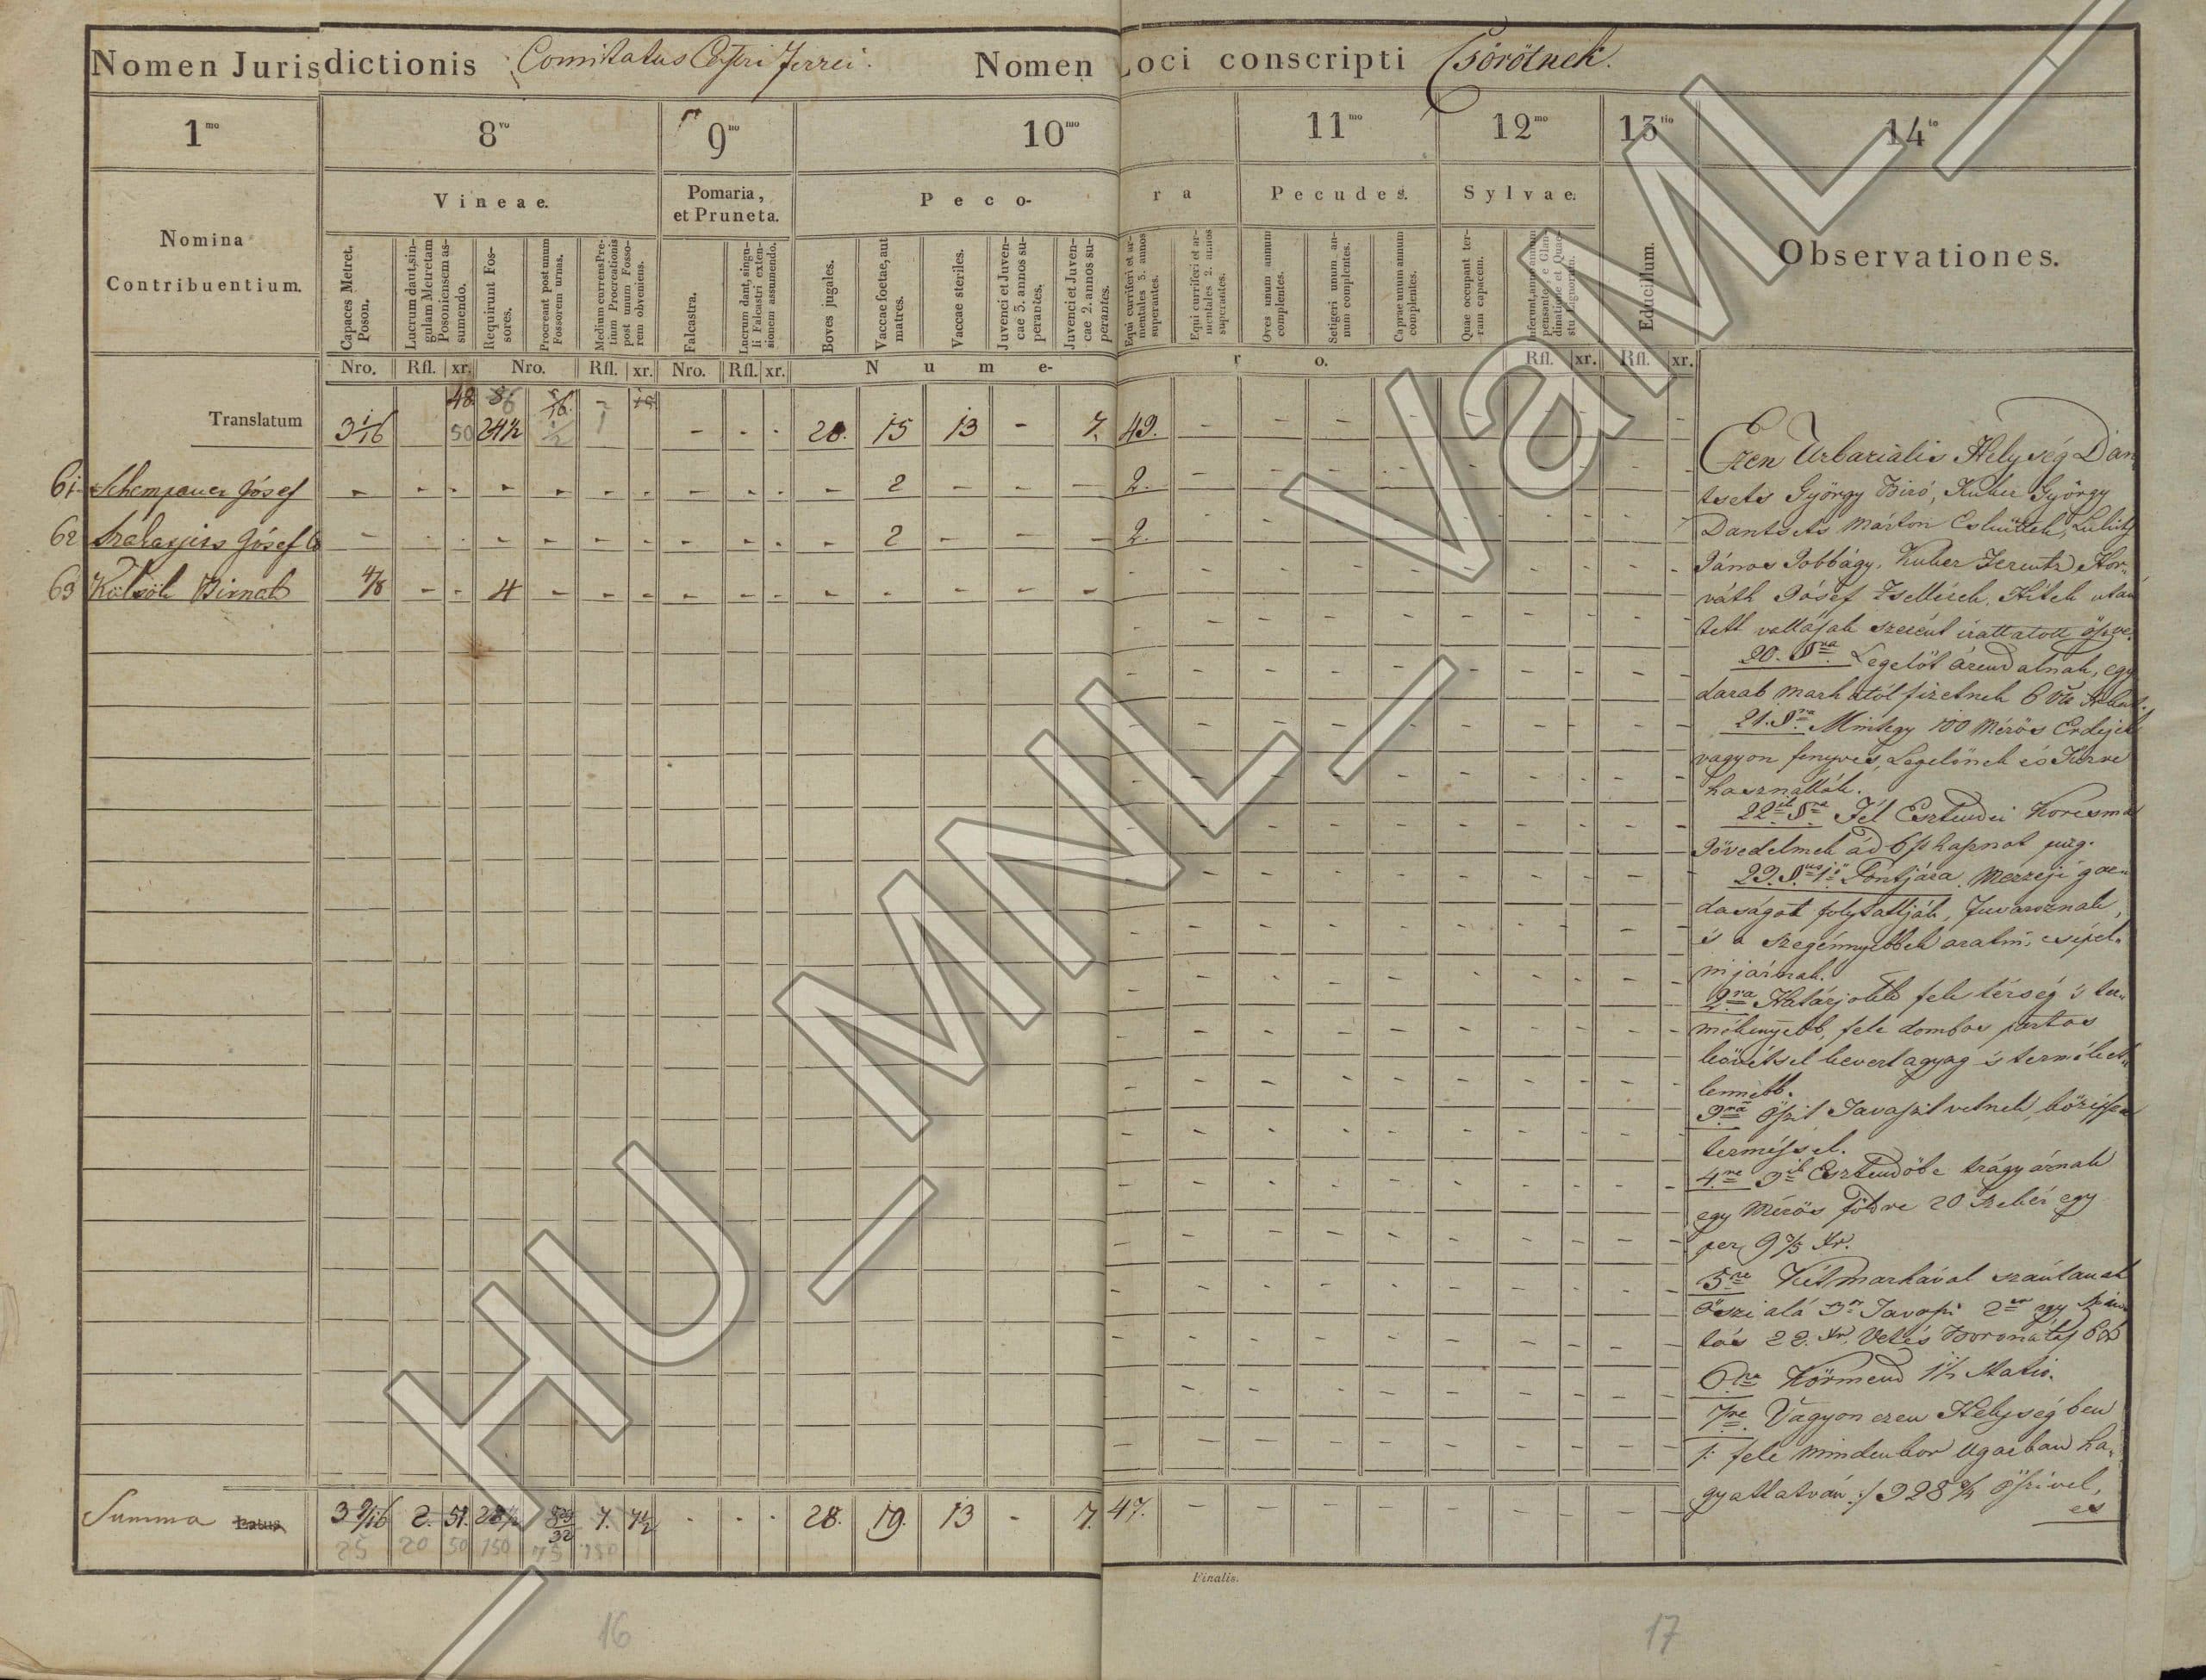 Nomen Jurisdictionis Comitatus Castri Ferrei. Nomen Loci conscripti Csörötnek.
1mo 8vo 9no 10mo 11mo 12mo 13tio 14to
Nomina Contribuentium.
Vineae.
Pomaria, et Pruneta.
Peco-
ra
Pecudes.
Sylvae.
Educillum.
Observationes.
Capaces Metret. Poson.
Lucrum dant, singulam Metretam Posoniensem assumendo.
Requirunt Fossores.
Procreant post unum Fossorem urnas.
Medium currens Pretium Procreationis post unum Fossorem obveniens.
Falcastra.
Lucrum dant, singuli Falcastri extensionem assumendo.
Boves jugales.
Vaccae foetae, aut matres.
Vaccae steriles.
Juvenci et Juvencae 3. annos superantes.
Juvenci et Juvencae 2. annos superantes.
Equi curriferi et armentales 3. annos superantes.
Equi curriferi et armentales 2. annos superantes.
Oves unum annum complentes.
Setigeri unum annum complentes.
Caprae unum annum complentes.
Quae occupant terram capacem.
Nro. Rfl. xr. Nro. Rfl. xr. Nro. Rfl. xr. N u m e- r o. Rfl. xr. Rfl. xr.
48 36
Translatum 3 1/16 50 24 1/2 1/2 1 - - - 28. 15 13 - 7. 43. - - -
61. József - - - - - - - - - - - 2 - - - 2. -
62 József - - - - - - - - - - - 2 - - - 2. -
63 4/8 - - 4 - - - - - - - - - - -
Summa 3 9/16 2. 51. 28 1/2 7. 7 1/2 - - - 28. 19. 13 - 7. 47. - - - - - - - - - -
25 20 50 150 75 150
Ezen Urbarialis Helység Dan
tsets György Biró, Kuher György
Dantsets Márton Esküttek,
János Jobbágy, Kuher Ferentz Hor-
váth Jósef Zsellérek, Hitek után
tett vallások szerént irattatott öszve.
20. §ra Legelőt árendálnak, egy
darab marhától fizetnek 6
21. §ra Mintegy 100 Mérős Erdejek
vagyon fenyves, Legelőnek és
használlák.
22ik §ra Fél Esztendei Korcsma
Jövedelmek ád 6
23. §us 1ő Pontjára Mezzeji gaz-
daságot folytattják, fuvaroznak,
és a szegénnyebbek aratni, csépel-
ni járnak.
2ra Határjok fele térség 's ter-
mékenyebb, fele dombos partos
kövétsel kevert agyag 's terméket-
lennebb.
3ra Öszit Tavaszit vetnek
terméssel.
4re 3ik Esztendőbe trágyáznak
egy Mérős földre 20 Szekér egy
per 9 Xr.
5re Két marhával szántanak
Öszi alá 3or Tavaszi 2or egy Szán-
tás 22. Xr. Vetés Boronálás 6 Xr
6ra Körmend 1 1/2 Statio.
7re Vagyon ezen Helységben
/: fele mindenkor Ugarban ha-
gyattatván :/ 328 Öszivel,
es
Finalis.
16
17
HU_MNL_VaML_